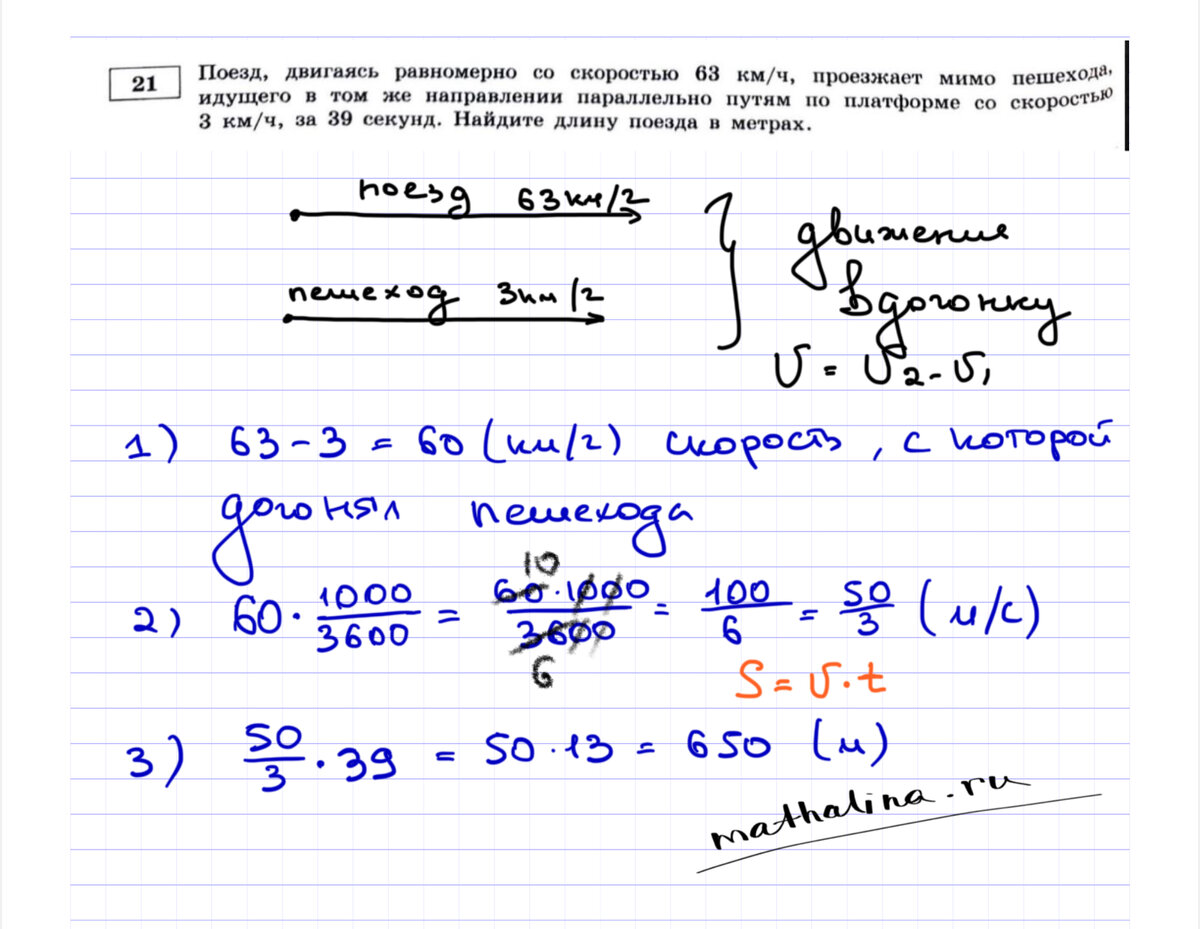 21
Поезд, двигаясь равномерно со скоростью 63 км/ч, проезжает мимо пешехода,
идущего в том же направлении параллельно путям по платформе со скоростью
3 км/ч, за 39 секунд. Найдите длину поезда в метрах.
поезд 63км/ч
пешеход 3км/ч
движение
вдогонку
v = v₂ - v₁
1) 63 - 3 = 60 (км/ч) скорость, с которой
догонял пешехода
2) 60 · 1000/3600 = 60·1000/3600 = 100/6 = 50/3 (м/с)
10
6
S = v · t
3) 50/3 · 39 = 50 · 13 = 650 (м)
mathalina.ru